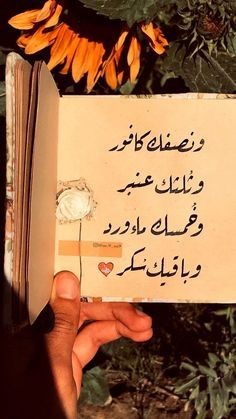 ونصفك كافور
وثلثك عنبر
وخُمسك ماءورد
وباقيك سكر